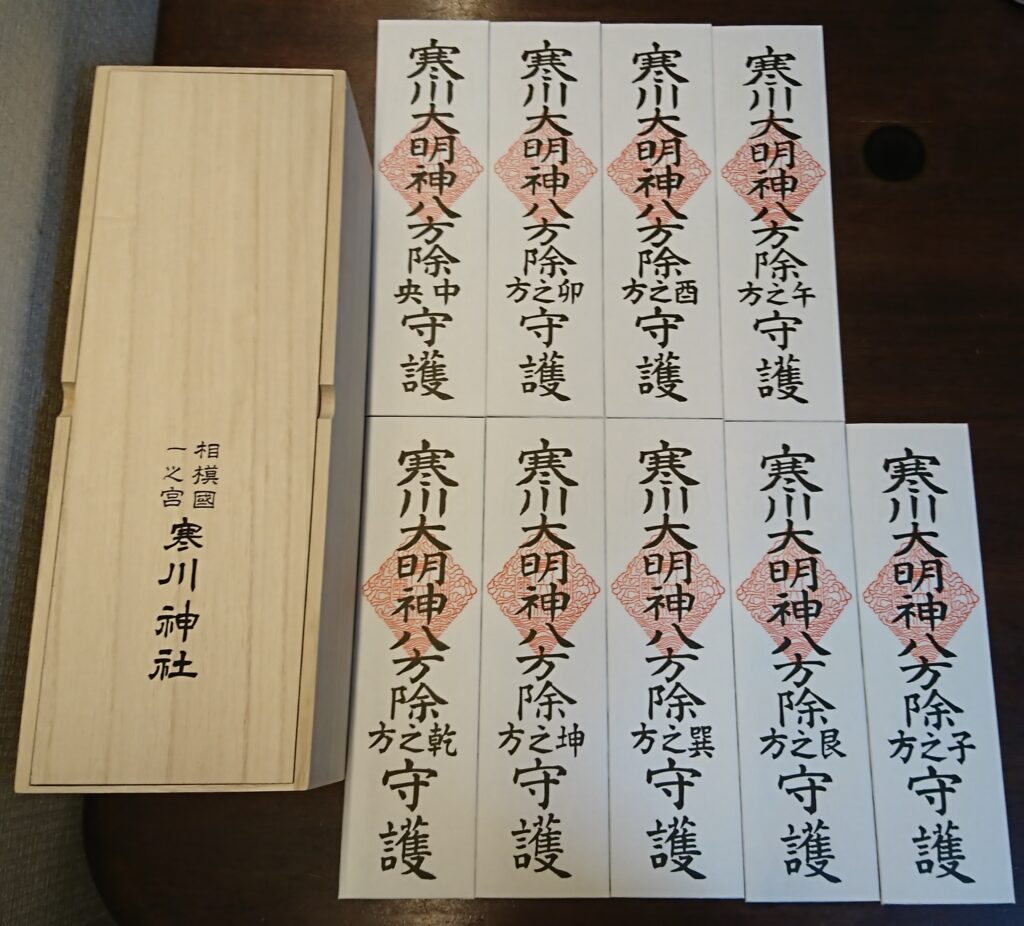 相模國
一之宮
寒川神社
寒川大明神八方除中央守護
寒川大明神八方除卯之方守護
寒川大明神八方除酉之方守護
寒川大明神八方除午之方守護
寒川大明神八方除乾之方守護
寒川大明神八方除坤之方守護
寒川大明神八方除巽之方守護
寒川大明神八方除艮之方守護
寒川大明神八方除子之方守護